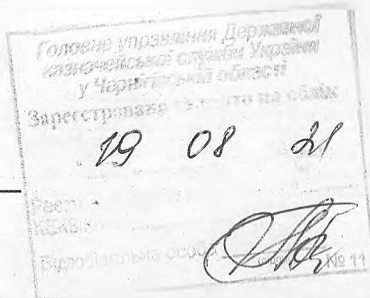 Головне управління Державної
казначейської служби України
у Чернігівській області
Зареєстровано та взято на облік
19 08 21
Відповідальна особа
№ 11